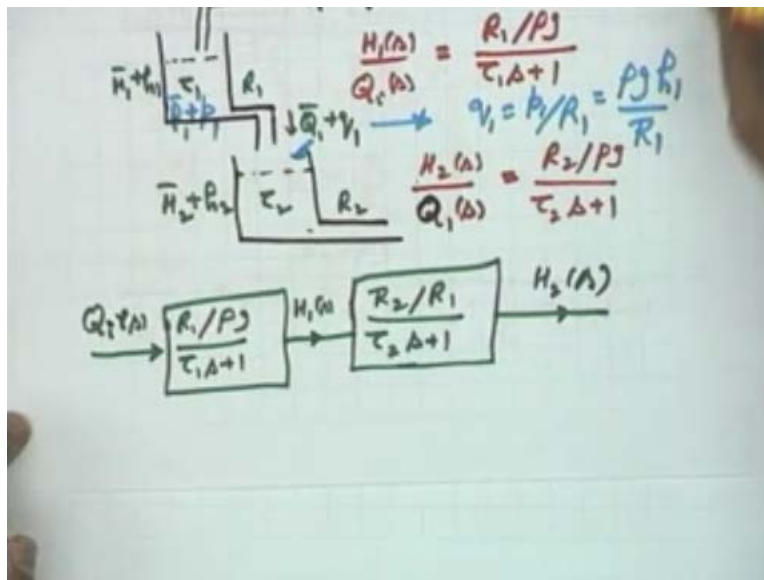 H̄₁+h₁ τ₁ R₁
p̄₁+p₁
H₁(s)/Qᵢ(s) = (R₁/ρg)/(τ₁s+1)
↓Q̄₁+q₁ → q₁ = p₁/R₁ = ρgh₁/R₁
H̄₂+h₂ τ₂ R₂
H₂(s)/Q₁(s) = (R₂/ρg)/(τ₂s+1)
Qᵢ(s) (R₁/ρg)/(τ₁s+1) H₁(s) (R₂/R₁)/(τ₂s+1) H₂(s)